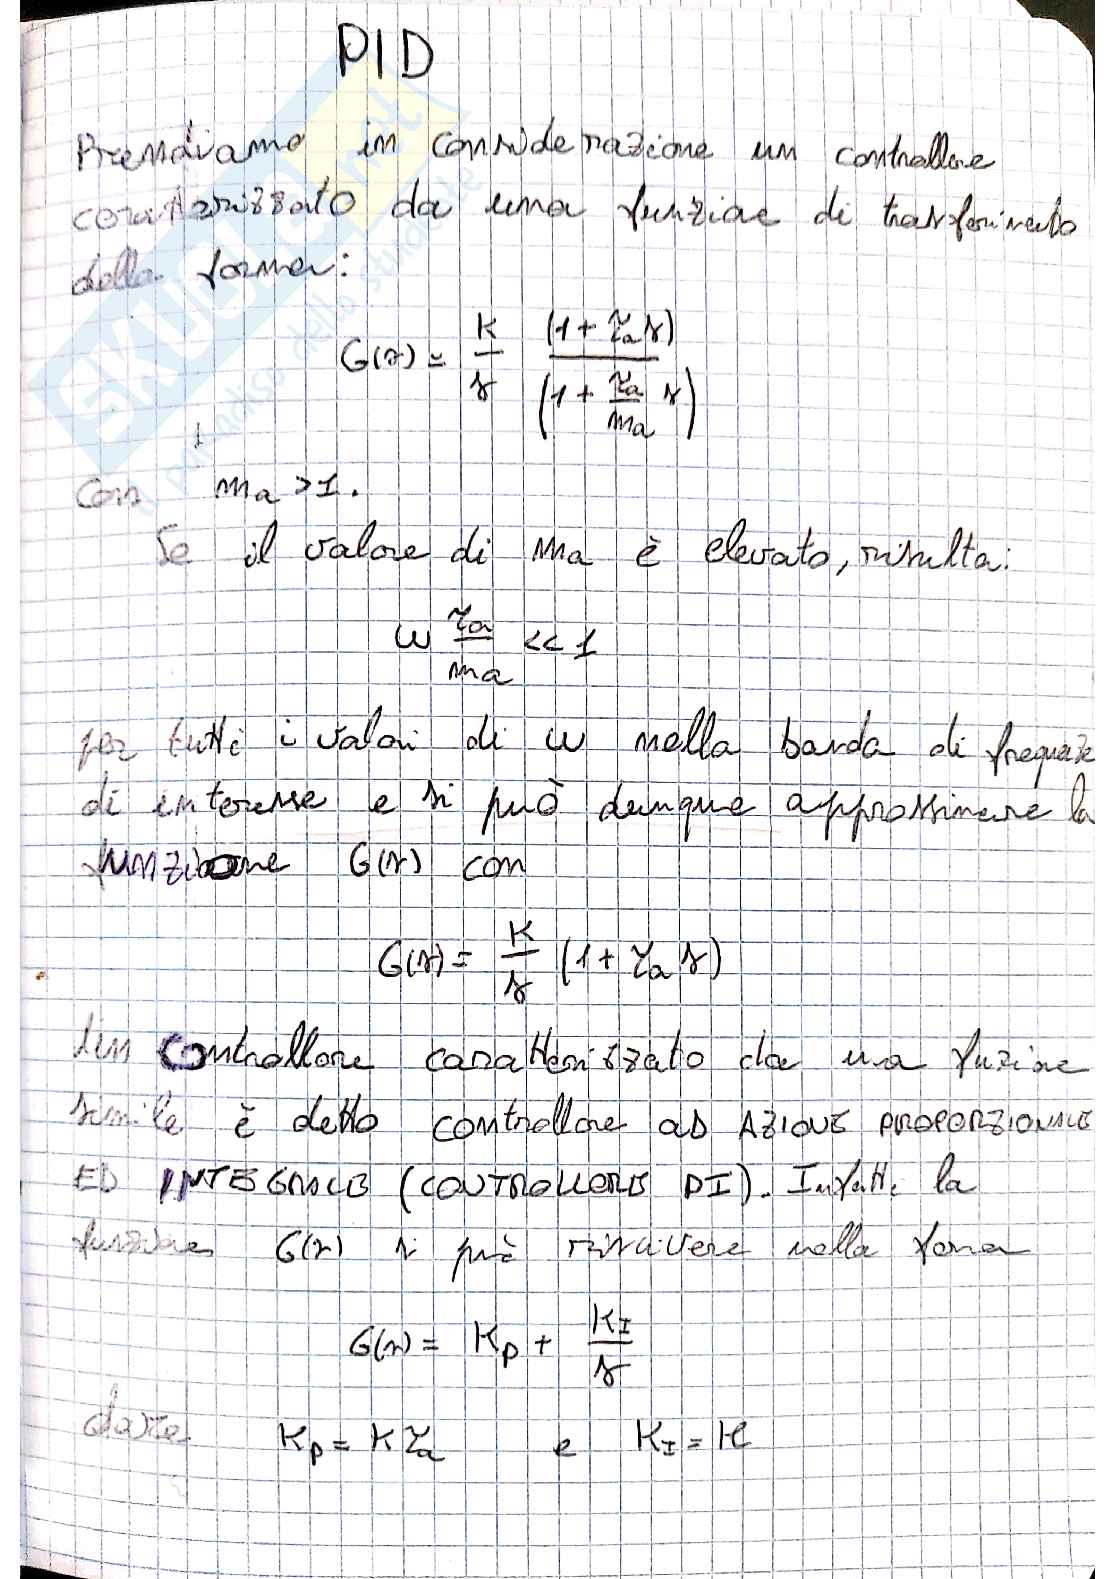 PID
Prendiamo in considerazione un controllore
caratterizzato da una funzione di trasferimento
della forma:
G(s) = K/s (1 + τa s) / (1 + τa/ma s)
Con ma > 1.
Se il valore di ma è elevato, risulta:
ω τa/ma << 1
per tutti i valori di ω nella banda di frequenze
di interesse e si può dunque approssimare la
funzione G(s) con
G(s) = K/s (1 + τa s)
Un controllore caratterizzato da una funzione
simile è detto controllore AD AZIONE PROPORZIONALE
ED INTEGRALE (CONTROLLORE PI). Infatti la
funzione G(s) si può riscrivere nella forma
G(s) = KP + KI/s
dove
KP = K τa e KI = K
SKUOLA.net
il paradiso dello studente